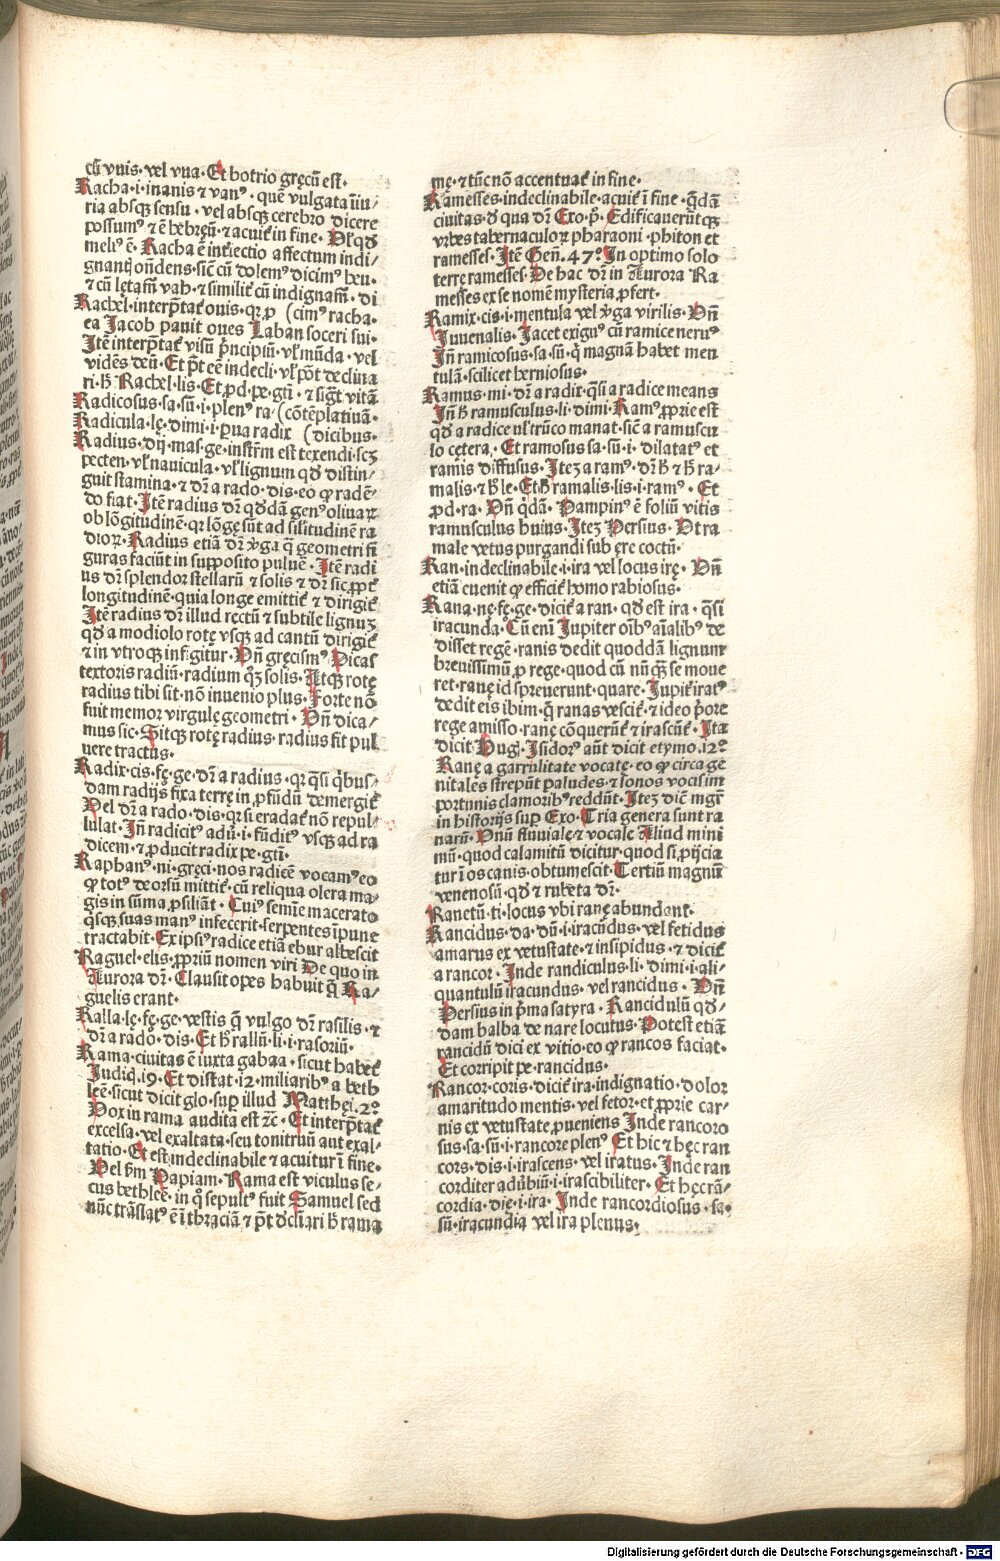 cũ vuis·vel vua·Et botrio gręcũ est·
Racha·i·inanis ⁊ vanꝰ·que vulgata iiu/
ria absqꝫ sensu·vel absqꝫ cerebro dicere
possumꝰ ⁊ ē hebręũ·⁊ acuiť in fine·Vľ qđ
melꝰ ē·Racha ē inťiectio affectum indi/
gnanť oñdens·sič cũ dolemꝰ dicimꝰ heu·
⁊ cũ lętam̃ vah·⁊ similiť cũ indignam̃·di
Rachel·interp̃tať ouis·qꝛ p (cimꝰ racha·
ea Jacob pauit oues Laban soceri sui·
Itẽ interp̃tať visũ p̃ncipiũ·vľ mũda·vel
videns deũ·Et p̃t eẽ indecli·vľ põt declina
ri·ħ Rachel·lis·Et ꝓd·pe·gťi·⁊ sigť vitã
Radicosus·sa·sũ·i·plenꝰ ra (cõtẽplatiuã·
Radicula·lę·dimi·i·ꝑua radix (dicibus·
Radius·dij·mas·ge·instr̃m est texendi·scꝫ
pecten·vľ nauicula·vľ lignum qđ distin/
guit stamina·⁊ dr̃ a rado·dis·eo ꝙ radẽ/
do fiat·Itẽ radius dr̃ qđdã genꝰ oliuaꝝ
ob lõgitudinẽ·qꝛ lõgę sũt ad silitudinẽ ra
dioꝝ·Radius etiã dr̃ ỹga q̃ geometri fi
guras faciũt in supposito puluẽ·Itẽ radi
us dr̃ splendor stellarũ ⁊ solis ⁊ dr̃ sic ꝓpť
longitudinẽ·quia longe emittiť ⁊ dirigiť
Itẽ radius dr̃ illud rectũ ⁊ subtile lignuꝫ
qđ a modiolo rotę vsqꝫ ad cantũ dirigiť
⁊ in vtroqꝫ infigitur·Vñ gręcismꝰ Dicas
textoris radiũ·radium qꝫ solis·Atqꝫ rotę
radius tibi sit·nõ inuenio plus·Forte nõ
fuit memor virgulę geometri·Vñ dica/
mus sic·Sitqꝫ rotę radius·radius fit pul
uere tractus·
Radix·cis·fę·ge·dr̃ a radius·qꝛ q̃si q̃bus/
dam radijs fixa terrę in ꝓfũdũ demergiť
Vel dr̃ a rado·dis·qꝛ si eradať nõ repul/
lulat·Iñ radicitꝰ adũ·i·fũditꝰ vsqꝫ ad ra
dicem·⁊ ꝓducit radix pe·gťi·
Raphanꝰ·ni·gręci·nos radicẽ vocamꝰ eo
ꝙ totꝰ deorsũ mittiť·cũ reliqua olera ma/
gis in sũma ꝓsiliãt·Cuiꝰ semĩe macerato
q̃sqꝫ suas manꝰ infecerit·serpentes ĩpune
tractabit·Ex ipsiꝰ radice etiã ebur albescit
Raguel·elis·ꝓpriũ nomen viri De quo in
Aurora dr̃·Clausit opes habuit q̃ Ra/
guelis erant·
Ralla·lę·fę·ge·vestis q̃ vulgo dr̃ rasilis·⁊
dr̃ a rado·dis·Et ħ rallũ·li·i·rasoriũ·
Rama·ciuitas ē iuxta gabaa·sicut habeť
Judiq̃·19·Et distat·12·miliaribꝰ a beth
leẽ·sicut dicit glo·suꝑ illud Matthęi·2º
Vox in rama audita est ⁊č·Et interp̃taťť
excelsa·vel exaltata·seu tonitruũ aut exal/
tatio·Et est indeclinabile ⁊ acuitur ĩ fine·
Vel ẜm Papiam·Rama est viculus se/
cus bethleẽ·in q̃ sepultꝰ fuit Samuel sed
nũc trãslatꝰ ē ĩ thraciã ⁊ p̃t dcľiari ħ rama
mę·⁊ tũc nõ accentuať in fine·
Ramesses·indeclinabile·acuiť ĩ fine·q̃dã
ciuitas·đ qua dr̃ Exo·p̃·Edificauerũtqꝫ
vrbes tabernaculoꝝ pharaoni·phiton et
ramesses·Itẽ Geñ·47º In optimo solo
terrę ramesses·De hac dr̃ in Aurora Ra
messes ex se nomẽ mysteria ꝓfert·
Ramix·cis·i·mentula vel ỹga virilis·Vñ
Juuenalis·Jacet exiguꝰ cũ ramice neruꝰ
Iñ ramicosus·sa·sũ·q̃ magnã habet men
tulã·scilicet herniosus·
Ramus·mi·dr̃ a radix·q̃si a radice means
Iñ ħ ramusculus·li·dimi·Ramꝰ ꝓprie est
qđ a radice vľ trũco manat·sič a ramuscu
lo cętera·Et ramosus·sa·sũ·i·dilatatꝰ et
ramis diffusus·Iteꝫ a ramꝰ·dr̃ ħ ⁊ ħ ra/
malis·⁊ ħ le·Et ħ ramalis·lis·i·ramꝰ·Et
ꝓd·ra·Vñ q̃dã·Pampinꝰ ē foliũ vitis
ramusculus huius·Iteꝫ Persius·Vt ra
male vetus purgandi sub ęre coctũ·
Ran·indeclinabile·i·ira vel locus irę·Vñ
etiã euenit ꝙ efficiť homo rabiosus·
Rana·nę·fę·ge·diciť a ran·qđ est ira·q̃si
iracunda·Cũ enĩ Jupiter oĩbꝰ aĩalibꝰ de
disset regẽ·ranis dedit quoddã lignum
breuissimũ ꝓ rege·quod cũ nũq̃ꝫ se moue
ret·ranę id spreuerunt·quare·Jupiť iratꝰ
dedit eis ibim·q̃ ranas vesciť·⁊ ideo p̃ore
rege amisso·ranę cõquerũť ⁊ irascũť·Ita
dicit Hug̃·Isidorꝰ aũt dicit etymo·12º
Ranę a garrulitate vocatę·eo ꝙ circa ge
nitales strepũt paludes·⁊ sonos vocis im
portunis clamoribꝰ reddũt·Iteꝫ dicť mgr̃
in historijs suꝑ Exo·Tria genera sunt ra
narũ·Vnũ fluuiale·⁊ vocale Aliud mini
mũ·quod calamitũ dicitur·quod si ꝓijcia
tur ĩ os canis·obtumescit·Tertiũ magnũ
venenosũ·qđ ⁊ rubeta dr̃·
Ranetũ·ti·locus vbi ranę abundant·
Rancidus·da·dũ·i·iracũdus·vel fetidus
amarus ex vetustate·⁊ insipidus·⁊ diciť
a rancor·Inde randiculus·li·dimi·i·ali/
quantulũ iracundus·vel rancidus·Vñ
Persius in p̃ma satyra·Rancidulũ qđ/
dam balba de nare locutus·Potest etiã
rancidũ dici ex vitio·eo ꝙ rancos faciat·
Et corripit pe·rancidus·
Rancor·coris·diciť ira·indignatio·dolor
amaritudo mentis·vel fetor·et ꝓprie car/
nis ex vetustate ꝓueniens Inde rancoro
sus·sa·sũ·i·rancore plenꝰ Et hic ⁊ hęc ran
cors·dis·i·irascens·vel iratus·Inde ran
corditer adũbiũ·i·irascibiliter·Et hęc rã/
cordia·dię·i·ira·Inde rancordiosus·sa·
sũ·iracundia vel ira plenus·
Digitalisierung gefördert durch die Deutsche Forschungsgemeinschaft - DFG